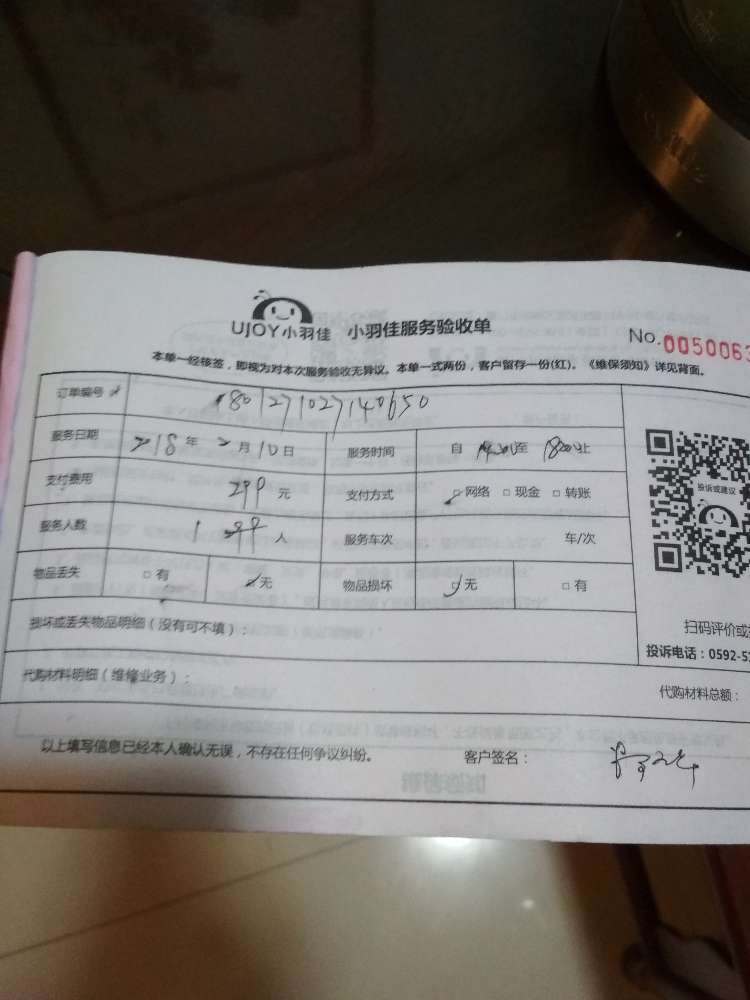 UJOY小羽佳 小羽佳服务验收单
No.0050063
本单一经接签，即视为对本次服务验收无异议。本单一式两份，客户留存一份(红)。《维保须知》详见背面。
订单编号 1801271027140650
服务日期 2018年2月10日 服务时间 自 至 止
支付费用 299元 支付方式 □网络 □现金 □转账
服务人数 1 人 服务车次 车/次
物品丢失 □有 □无 物品损坏 □无 □有
投诉或建议
损坏或丢失物品明细（没有可不填）：
扫码评价或
投诉电话：0592-5
代购材料明细（维修业务）：
代购材料总额：
以上填写信息已经本人确认无误，不存在任何争议纠纷。 客户签名：